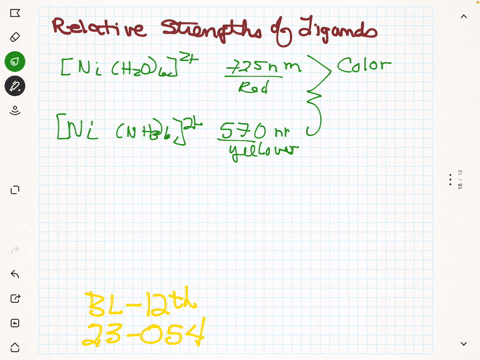 Relative Strengths of Ligands
[Ni (H2O)6]2+ 725nm Color
Red
[Ni (NH3)6]2+ 570 nr
yellow
BL-12th
23-054
18 / 18